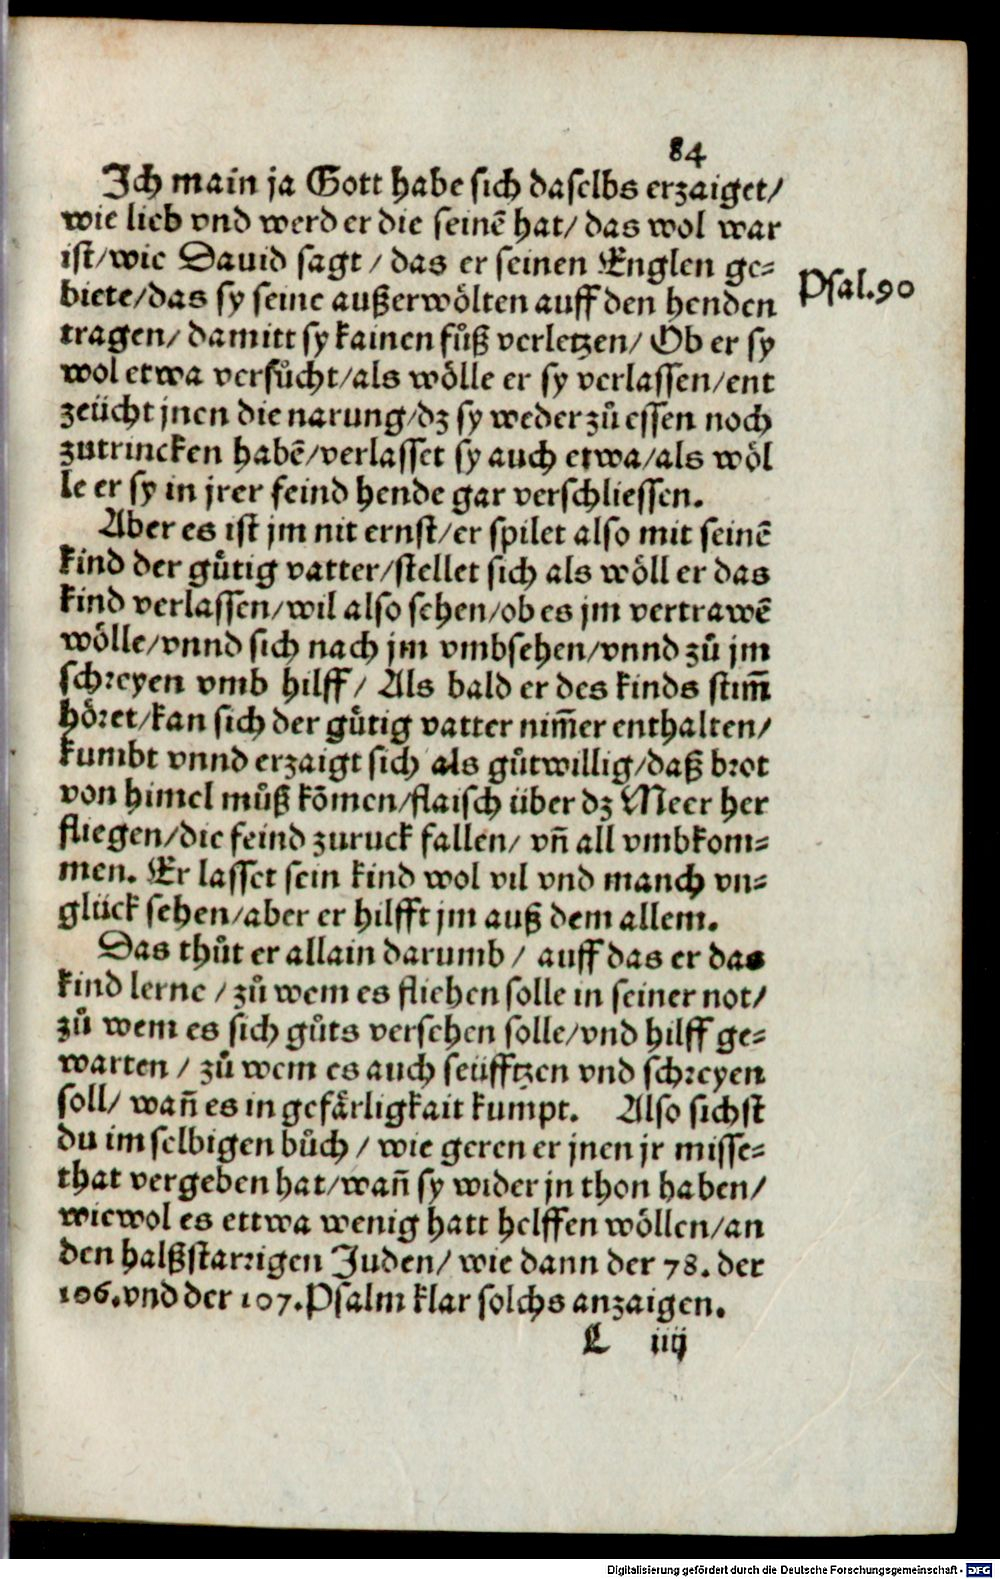 84
Ich main ja Gott habe sich daselbs erzaiget/
wie lieb vnd werd er die seinē hat/ das wol war
ist/wie Dauid sagt / das er seinen Englen ge=
biete/das sy seine außerwölten auff den henden
Psal.90
tragen/ damitt sy kainen fůß verletzen/ Ob er sy
wol etwa versůcht/als wölle er sy verlassen/ent
zeücht jnen die narung/dz sy weder zů essen noch
zutrincken habē/verlasset sy auch etwa/als wöl
le er sy in jrer feind hende gar verschliessen.
Aber es ist jm nit ernst/er spilet also mit seinē
kind der gůtig vatter/stellet sich als wöll er das
kind verlassen/wil also sehen/ob es jm vertrawē
wölle/vnnd sich nach jm vmbsehen/vnnd zů jm
schreyen vmb hilff/ Als bald er des kinds stim̄
höret/kan sich der gůtig vatter nim̄er enthalten/
kumbt vnnd erzaigt sich als gůtwillig/daß brot
von himel můß kōmen/flaisch über dz Meer her
fliegen/die feind zuruck fallen/ vn̄ all vmbkom=
men. Er lasset sein kind wol vil vnd manch vn=
glück sehen/aber er hilfft jm auß dem allem.
Das thůt er allain darumb / auff das er das
kind lerne / zů wem es fliehen solle in seiner not/
zů wem es sich gůts versehen solle/vnd hilff ge=
warten / zů wem es auch seüfftzen vnd schreyen
soll/ wan̄ es in gefärligkait kumpt. Also sichst
du im selbigen bůch / wie geren er jnen jr misse=
that vergeben hat/wan̄ sy wider jn thon haben/
wiewol es ettwa wenig hatt helffen wöllen/an
den halßstarrigen Juden/ wie dann der 78. der
106.vnd der 107.Psalm klar solchs anzaigen.
L iiij
Digitalisierung gefördert durch die Deutsche Forschungsgemeinschaft - DFG